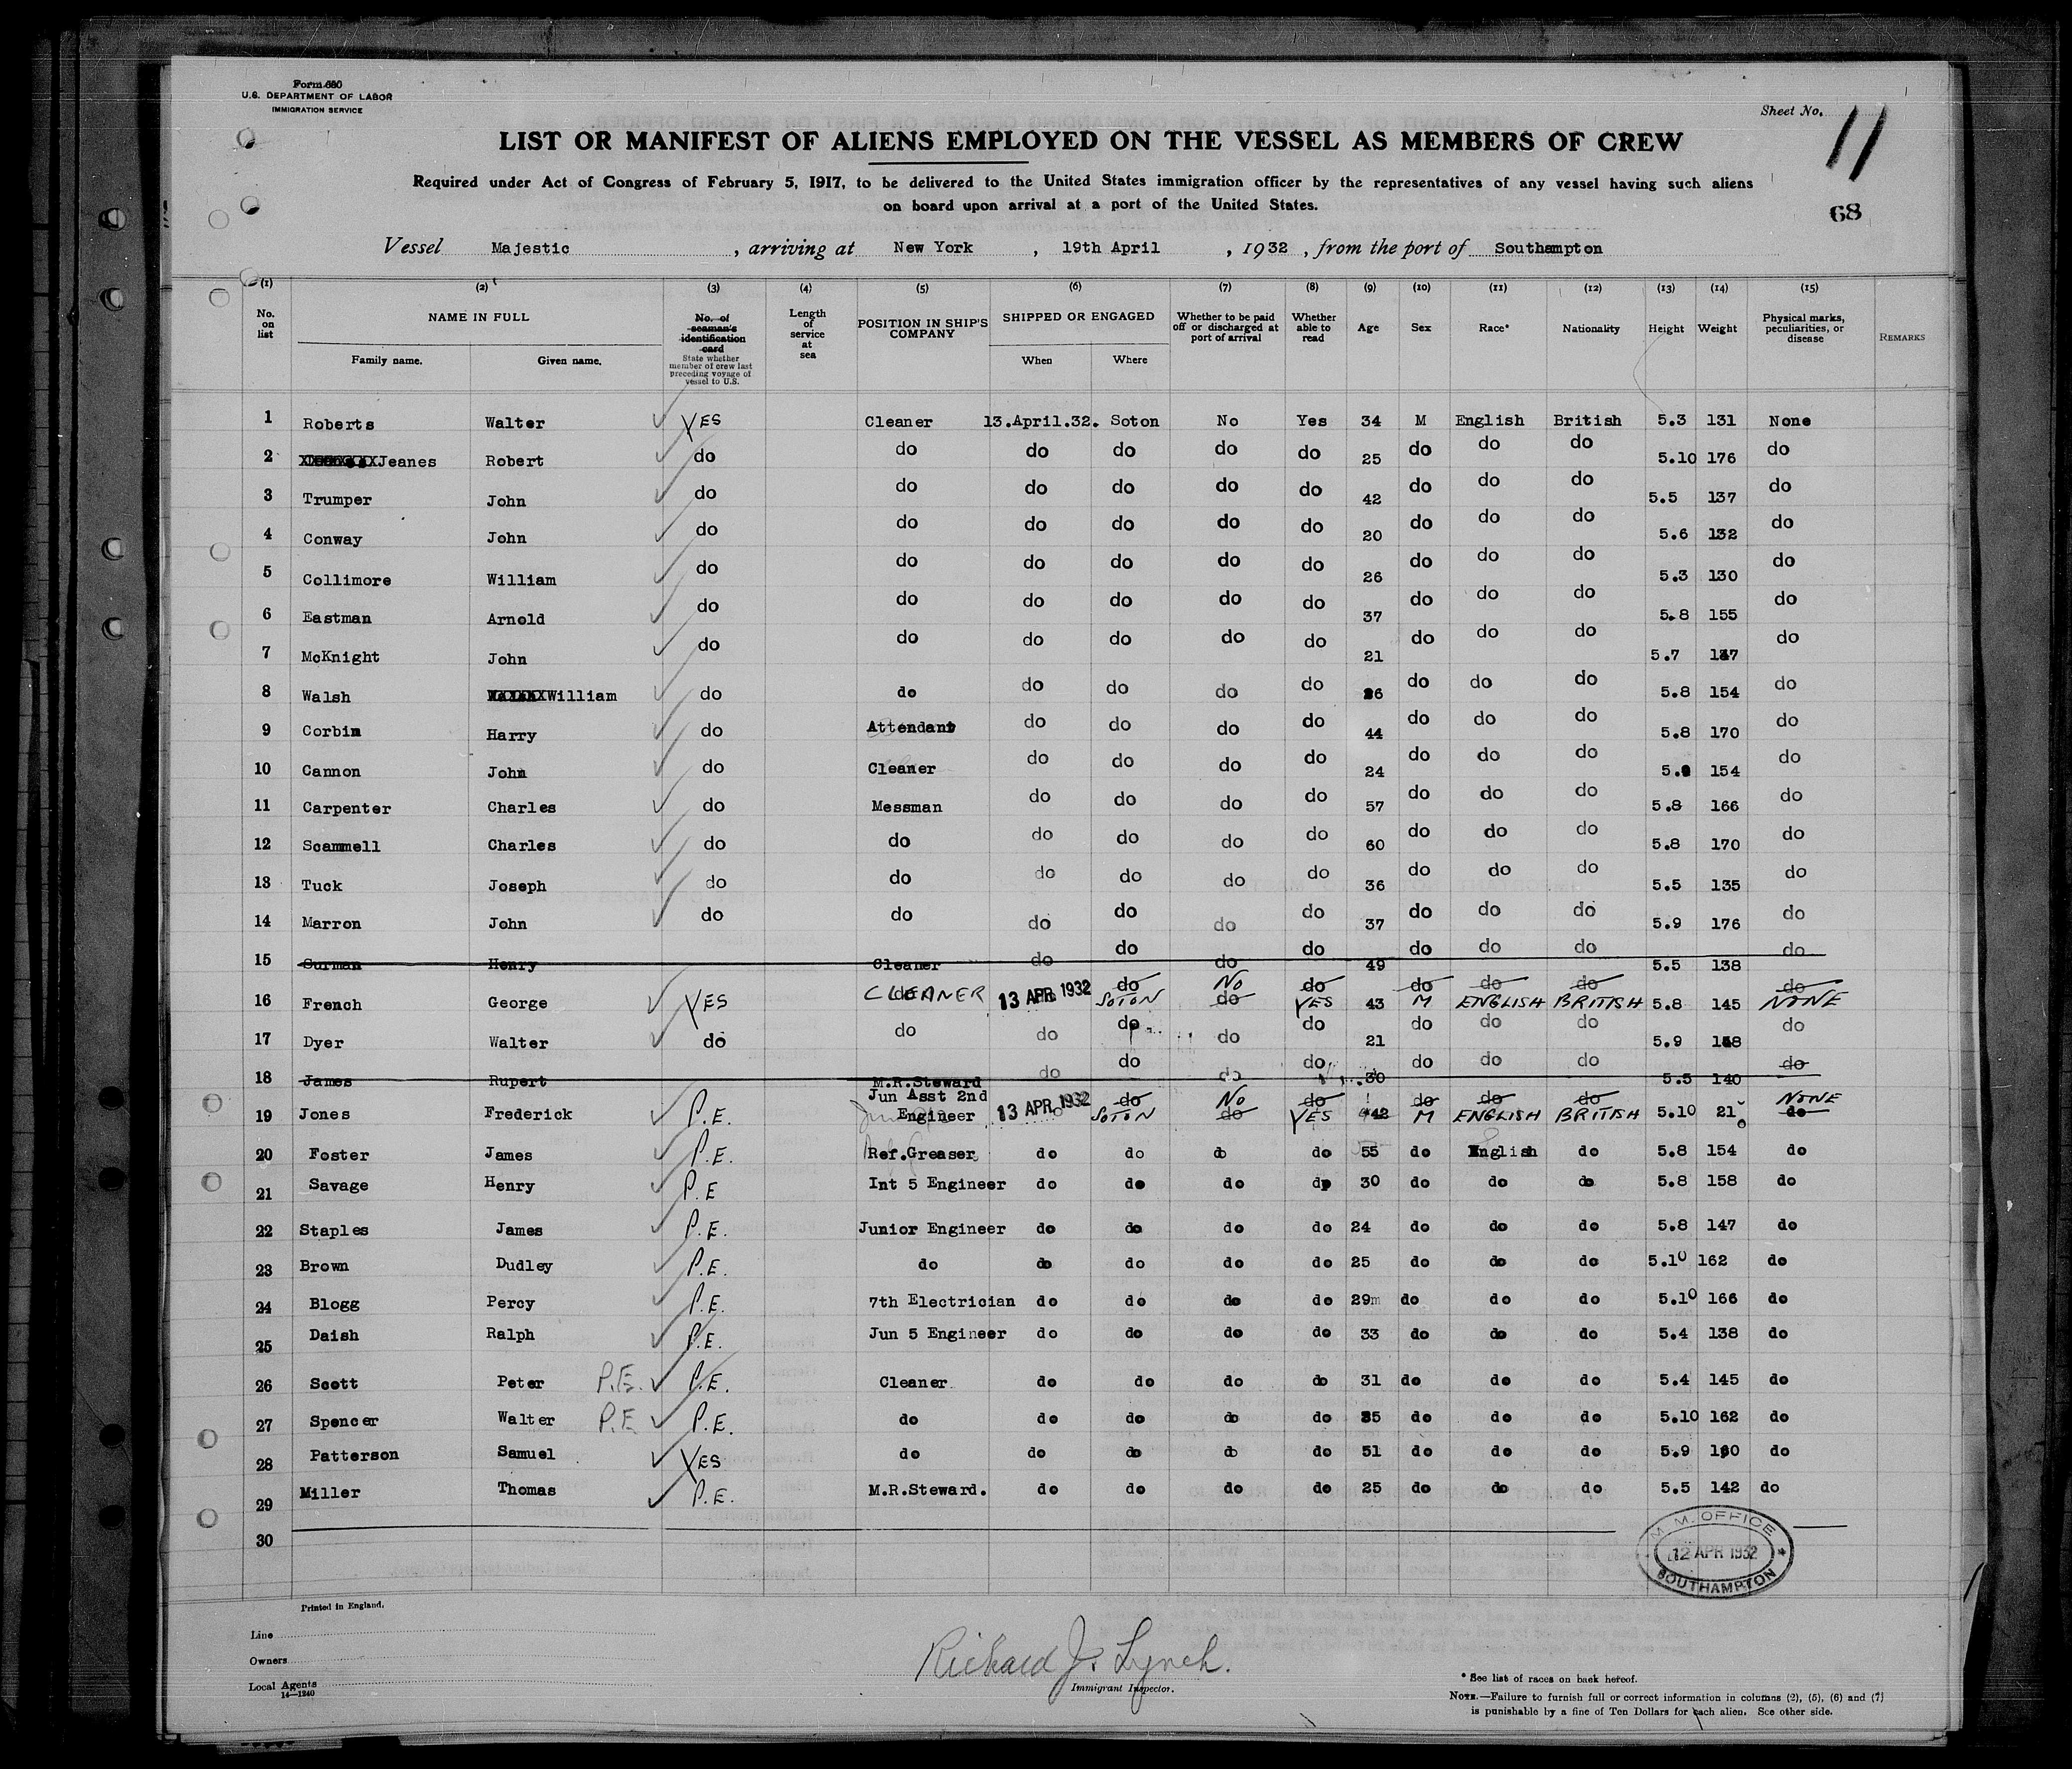 Form 680
U.S. DEPARTMENT OF LABOR
IMMIGRATION SERVICE
Sheet No. 11
LIST OR MANIFEST OF ALIENS EMPLOYED ON THE VESSEL AS MEMBERS OF CREW
Required under Act of Congress of February 5, 1917, to be delivered to the United States immigration officer by the representatives of any vessel having such aliens
on board upon arrival at a port of the United States.
68
Vessel Majestic , arriving at New York , 19th April , 1932 , from the port of Southampton
(1) (2) (3) (4) (5) (6) (7) (8) (9) (10) (11) (12) (13) (14) (15)
No. on list
NAME IN FULL
Family name. Given name.
No. of seaman's identification card
State whether member of crew last preceding voyage of vessel to U.S.
Length of service at sea
POSITION IN SHIP'S COMPANY
SHIPPED OR ENGAGED
When Where
Whether to be paid off or discharged at port of arrival
Whether able to read
Age
Sex
Race*
Nationality
Height
Weight
Physical marks, peculiarities, or disease
REMARKS
1 Roberts Walter YES Cleaner 13.April.32. Soton No Yes 34 M English British 5.3 131 None
2 Jeanes Robert do do do do do do 25 do do do 5.10 176 do
3 Trumper John do do do do do do 42 do do do 5.5 137 do
4 Conway John do do do do do do 20 do do do 5.6 132 do
5 Collimore William do do do do do do 26 do do do 5.3 130 do
6 Eastman Arnold do do do do do do 37 do do do 5.8 155 do
7 McKnight John do do do do do do 21 do do do 5.7 do
8 Walsh William do do do do do do do do do 5.8 154 do
9 Corbin Harry do Attendant do do do do 44 do do do 5.8 170 do
10 Cannon John do Cleaner do do do do 24 do do do 154 do
11 Carpenter Charles do Messman do do do do 57 do do do 5.8 166 do
12 Scammell Charles do do do do do do 60 do do do 5.8 170 do
13 Tuck Joseph do do do do do do 36 do do do 5.5 135 do
14 Marron John do do do do do do 37 do do do 5.9 176 do
15 Surman Henry Cleaner do do do do 49 do do do 5.5 138 do
16 French George YES CLEANER 13 APR 1932 do SOTON NO do do YES 43 do M do ENGLISH do BRITISH 5.8 145 do NONE
17 Dyer Walter do do do do do do 21 do do do 5.9 do
18 James Rupert M.R.Steward do do do do 30 do do do 5.5 140 do
19 Jones Frederick P.E. Jun Asst 2nd Engineer 13 APR 1932 do SOTON NO do do YES 42 do M do ENGLISH do BRITISH 5.10 21 NONE do
20 Foster James P.E. Ref.Greaser do do do do 55 do English do 5.8 154 do
21 Savage Henry P.E Int 5 Engineer do do do do 30 do do do 5.8 158 do
22 Staples James P.E. Junior Engineer do do do do 24 do do do 5.8 147 do
23 Brown Dudley P.E. do do do do do 25 do do do 5.10 162 do
24 Blogg Percy P.E. 7th Electrician do do do do 29m do do do 5.10 166 do
25 Daish Ralph P.E. Jun 5 Engineer do do do do 33 do do do 5.4 138 do
26 Scott Peter P.E. P.E. Cleaner do do do do 31 do do do 5.4 145 do
27 Spencer Walter P.E P.E. do do do do do do do do 5.10 162 do
28 Patterson Samuel YES do do do do do 51 do do do 5.9 do
29 Miller Thomas P.E. M.R.Steward. do do do do 25 do do do 5.5 142 do
30
M. M. OFFICE
12 APR 1932
SOUTHAMPTON
Printed in England.
Line
Owners
Local Agents
14—1240
Richard J. Lynch.
Immigrant Inspector.
* See list of races on back hereof.
NOTE.—Failure to furnish full or correct information in columns (2), (5), (6) and (7)
is punishable by a fine of Ten Dollars for each alien. See other side.